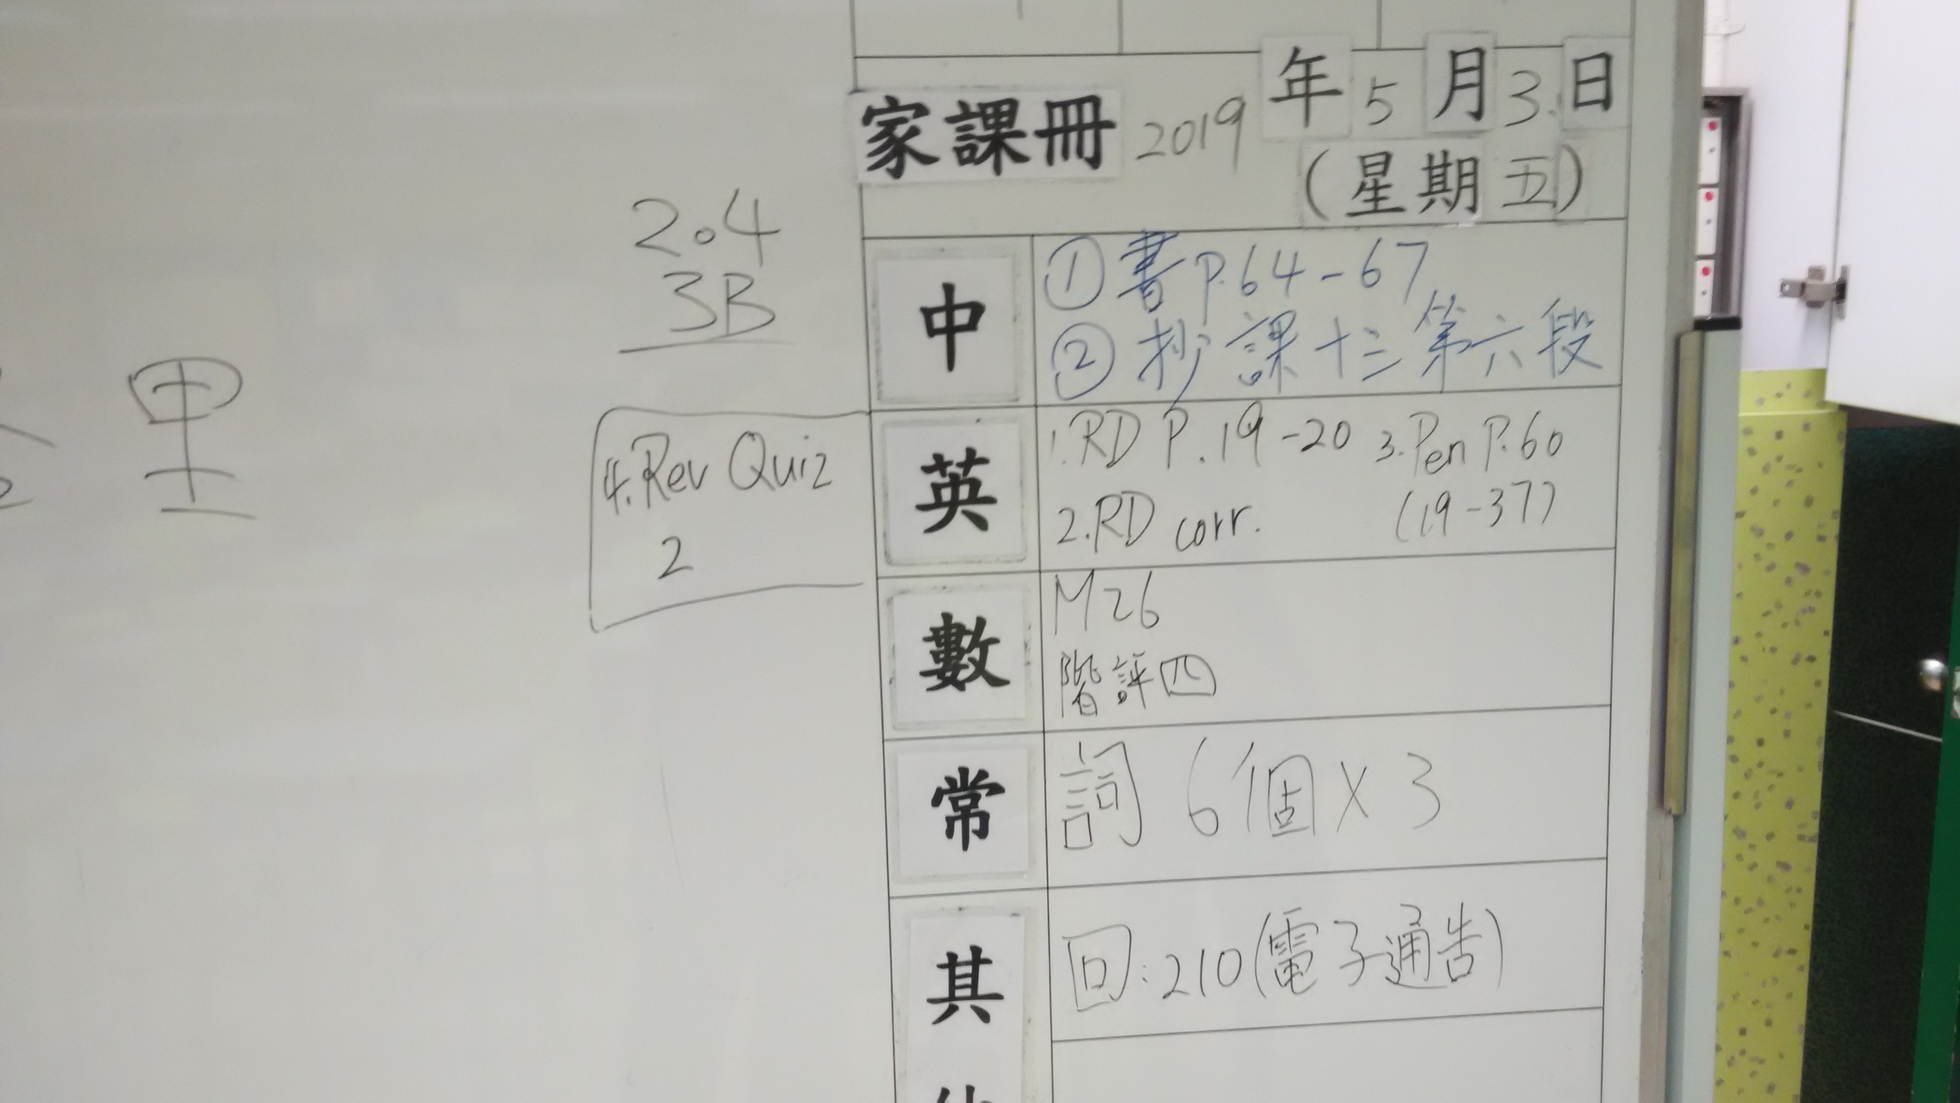 家課冊 2019年5月3日
(星期五)
2.4
3B
里
中
①書P.64-67
②抄課十三第六段
英
1.RD P.19-20 3.Pen P.60
2.RD corr. (19-37)
4.Rev Quiz
2
數
M26
階評四
常
詞 6個X3
其
回:210(電子通告)